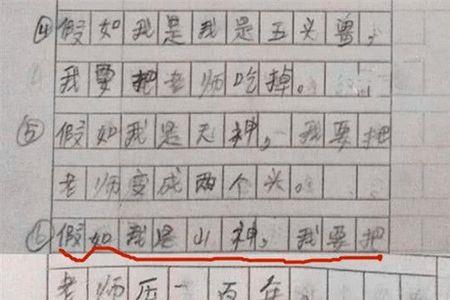 ④假如我是我是五头兽，
我要把老师吃掉。
⑤假如我是天神，我要把
老师变成两个头。
⑥假如我是山神，我要把
老师压一百年